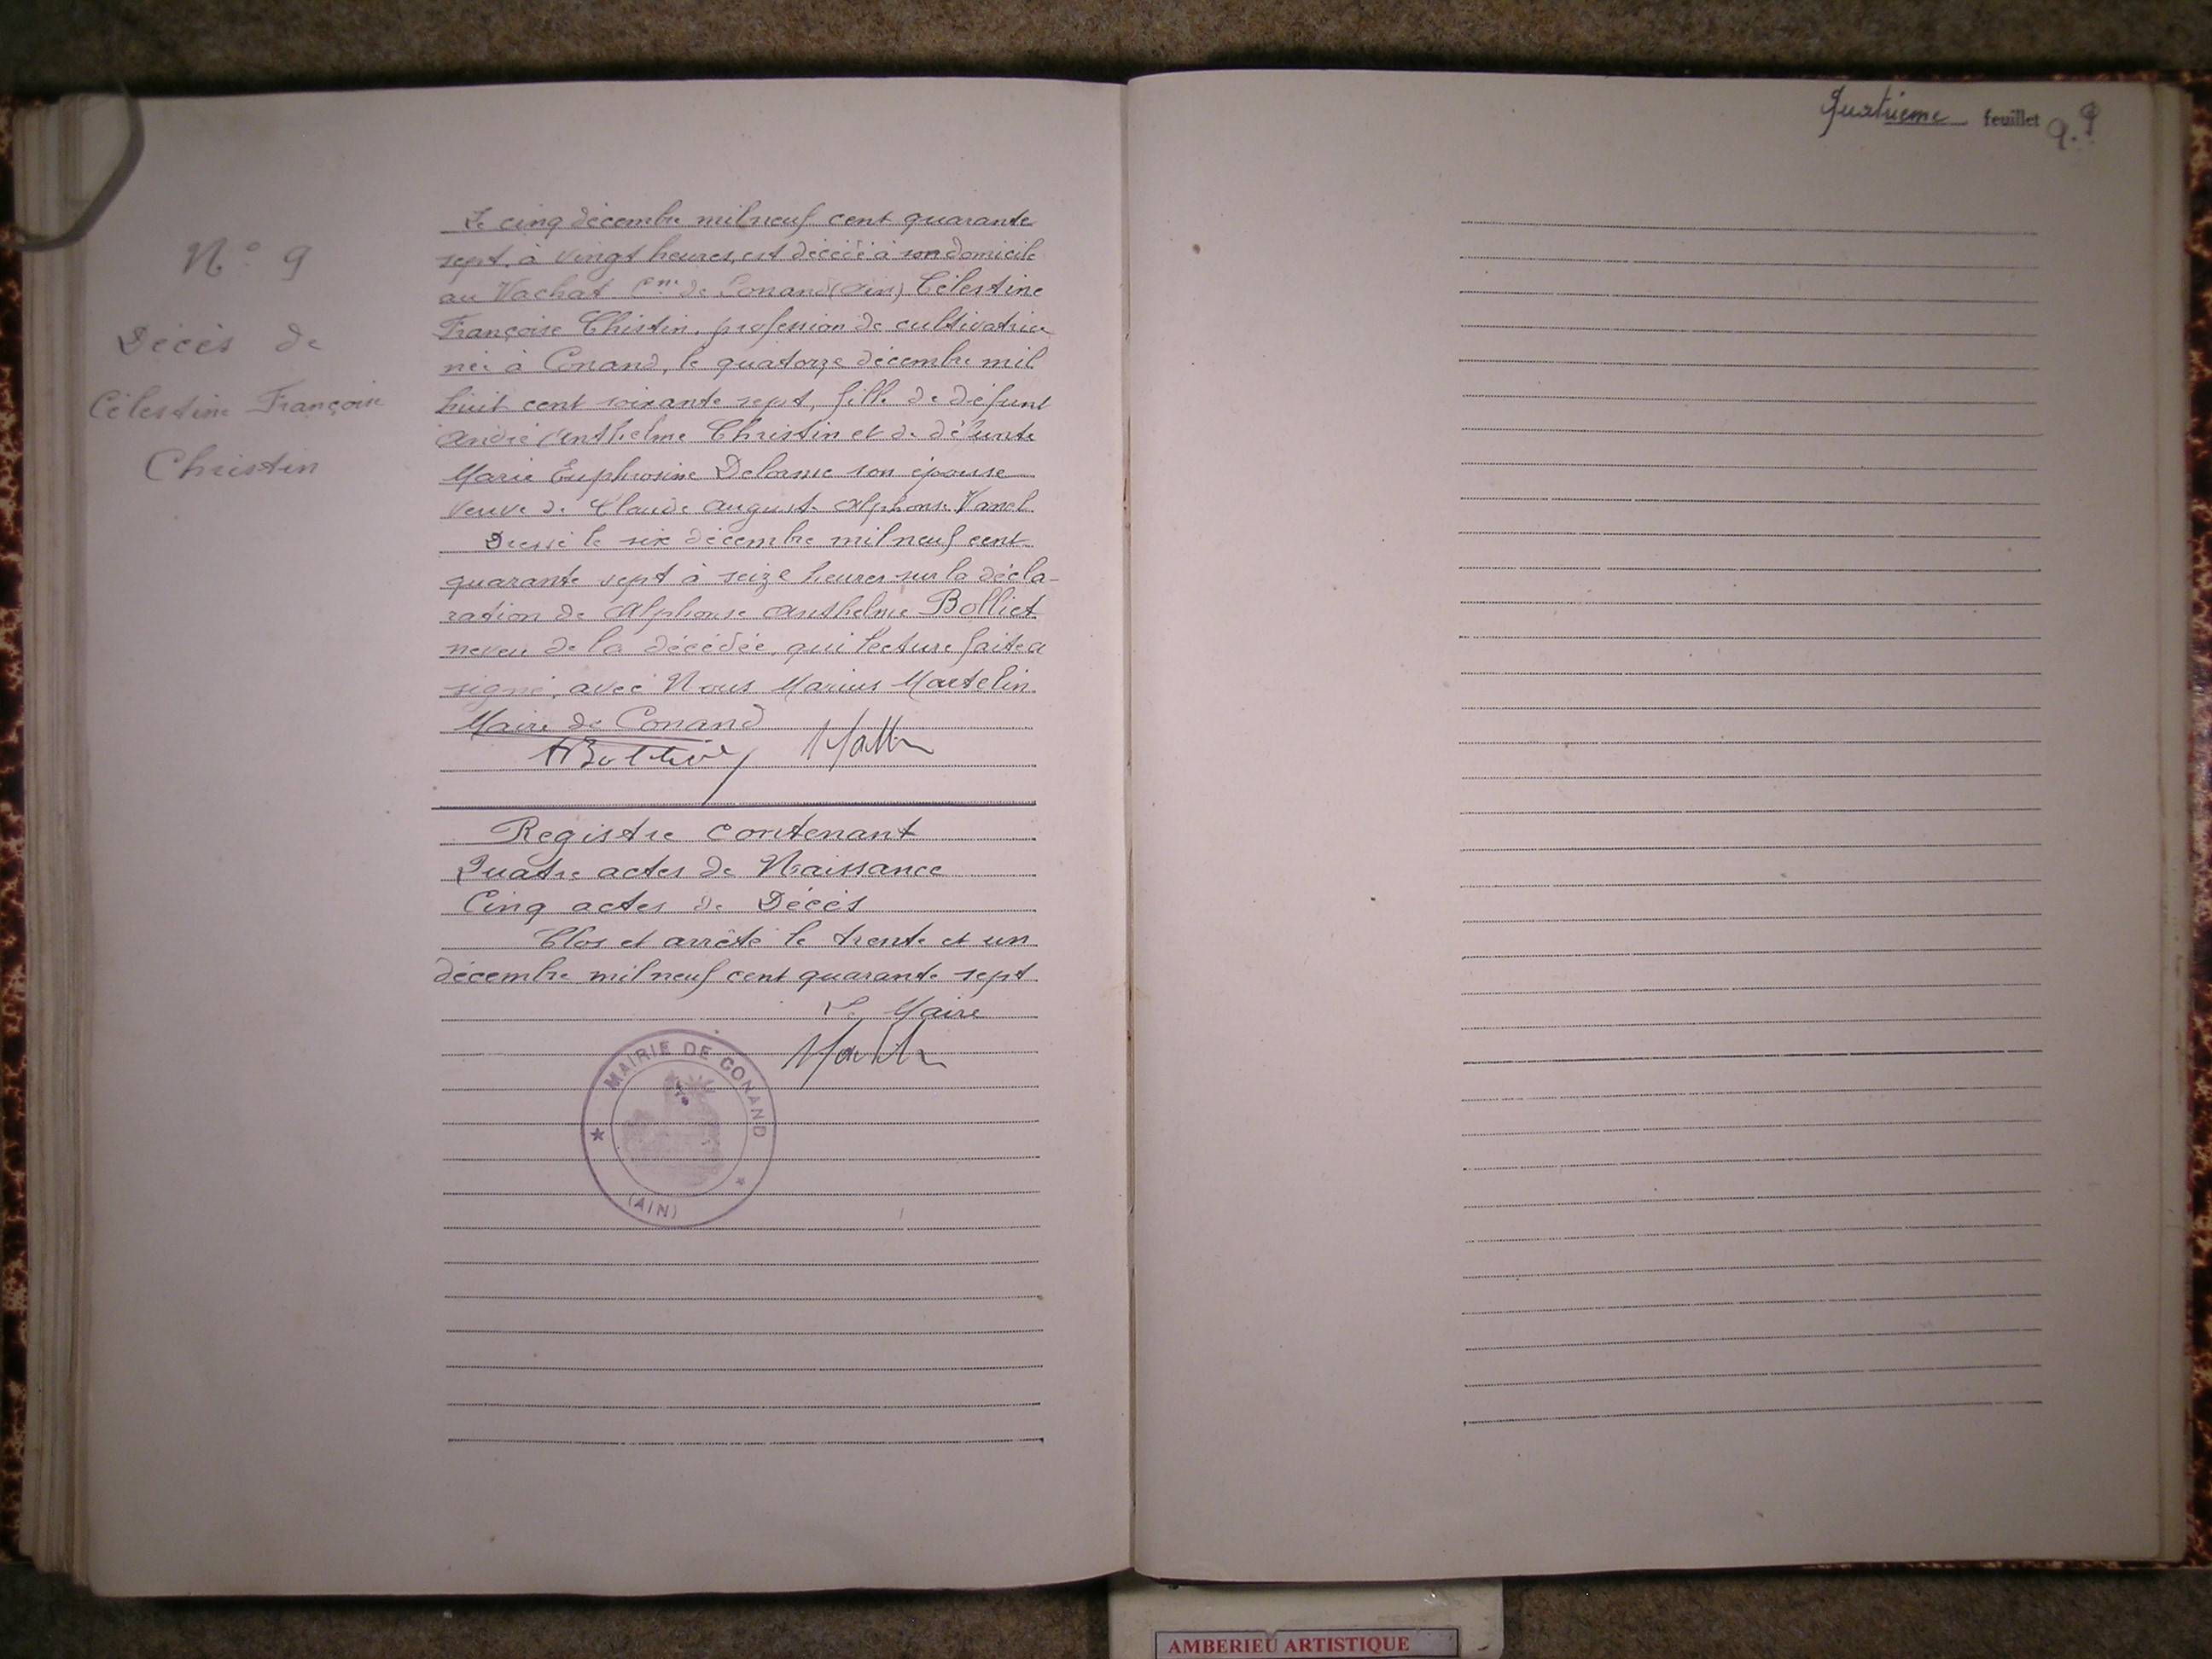 N° 9
Décès de
Célestine Françoise
Christin
Le cinq décembre mil neuf cent quarante
sept, à vingt heures, est décédé à son domicile
au Vachat Cne de Conand (Ain) Célestine
Françoise Chistin, profession de cultivatrice
née à Conand, le quatorze décembre mil
huit cent soixante sept, fille de défunt
André Anthelme Christin et de défunte
Marie Euphrosine Delorme son épouse
veuve de Claude Auguste Alphonse Vanel
Dressé le six décembre mil neuf cent
quarante sept à seize heures sur la décla-
ration de Alphonse Anthelme Bolliet
neveu de la décédée, qui lecture faite a
signé, avec Nous Marius Martelin
Maire de Conand
Registre contenant
Quatre actes de Naissance
Cinq actes de Décès
Clos et arrêté le trente et un
décembre mil neuf cent quarante sept
Le Maire
MAIRIE DE CONAND
(AIN)
Quatrieme feuillet
AMBERIEU ARTISTIQUE